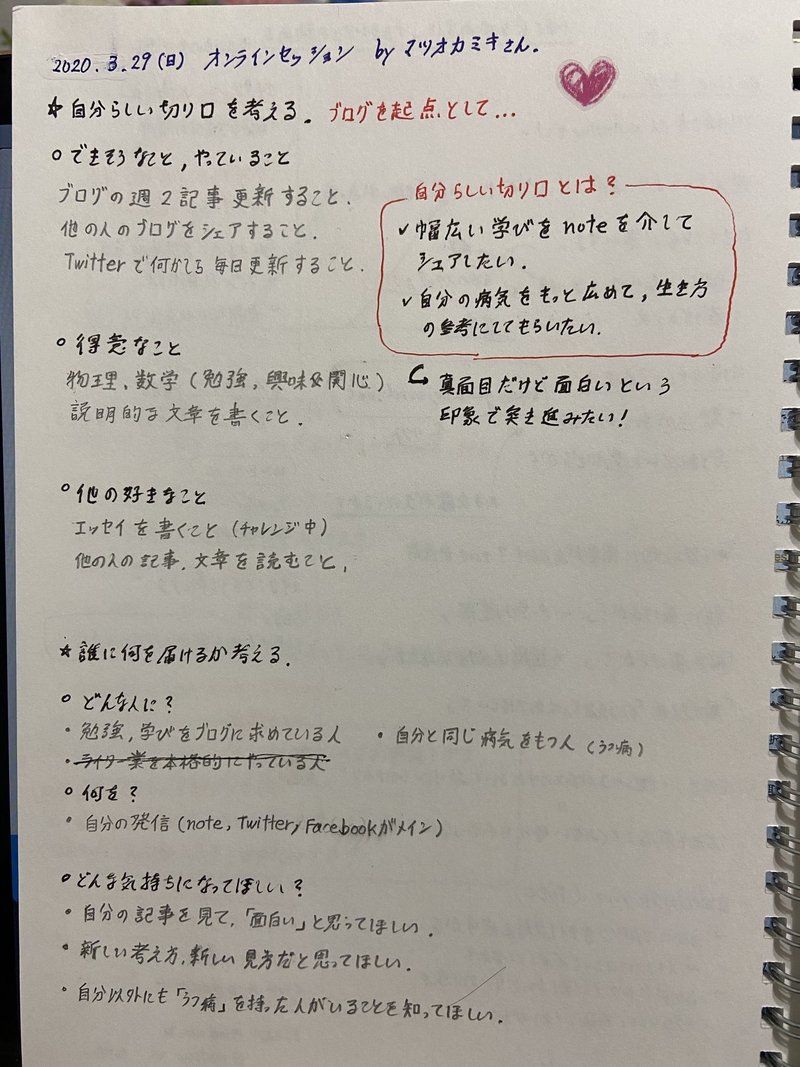 2020.3.29(日) オンラインセッション by マツオカミキさん.
☆自分らしい切り口を考える. ブログを起点として...
○できそうなこと,やっていること
ブログの週2記事更新すること.
他の人のブログをシェアすること.
Twitterで何かしら毎日更新すること.
自分らしい切り口とは?
✓幅広い学びをnoteを介して
シェアしたい.
✓自分の病気をもっと広めて,生き方
の参考にしてもらいたい.
真面目だけど面白いという
印象で突き進みたい!
○得意なこと
物理,数学(勉強,興味&関心)
説明的な文章を書くこと.
○他の好きなこと
エッセイを書くこと(チャレンジ中)
他の人の記事,文章を読むこと.
☆誰に何を届けるか考える.
○どんな人に?
・勉強,学びをブログに求めている人 ・自分と同じ病気をもつ人(うつ病)
・ライター業を本格的にやっている人
○何を?
・自分の発信(note,Twitter,Facebookがメイン)
○どんな気持ちになってほしい?
・自分の記事を見て,「面白い」と思ってほしい.
・新しい考え方,新しい見方だと思ってほしい.
・自分以外にも「うつ病」を持った人がいることを知ってほしい.